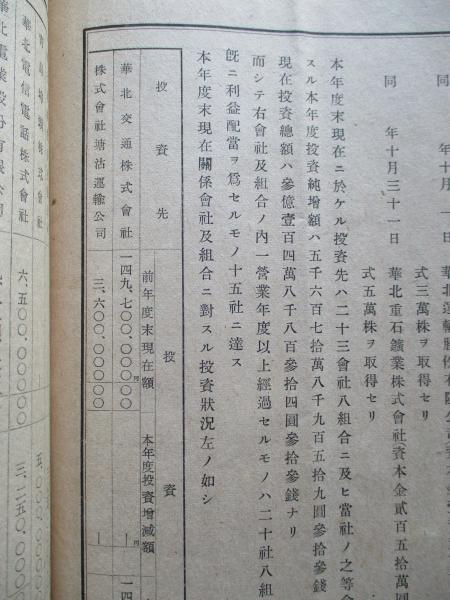 同 年十月 一日
式三萬株ヲ取得セリ
同 年十月三十一日 華北重石鑛業株式會社(資本金貳百五拾萬圓
式五萬株ヲ取得セリ
本年度末現在ニ於ケル投資先ハ二十三會社八組合ニ及ヒ當社ノ之等會
スル本年度投資純增額ハ五千六百七拾萬八千九百五拾九圓參拾參錢
現在投資總額ハ參億壹百四萬八千八百參拾四圓參拾參錢ナリ
而シテ右會社及組合ノ內一營業年度以上經過セルモノハ二十社八組
旣ニ利益配當ヲ爲セルモノ十五社ニ達ス
本年度末現在關係會社及組合ニ對スル投資狀況左ノ如シ
投資先
投資
前年度末現在額
本年度投資增減額
華北交通株式會社 一四九、七〇〇、〇〇〇円〇〇 ―円 一四
株式會社塘沽運輸公司 三、六〇〇、〇〇〇〇〇 ―
華北電信電話株式會社 六、五〇〇、〇〇〇〇〇 三、二五〇、〇〇〇